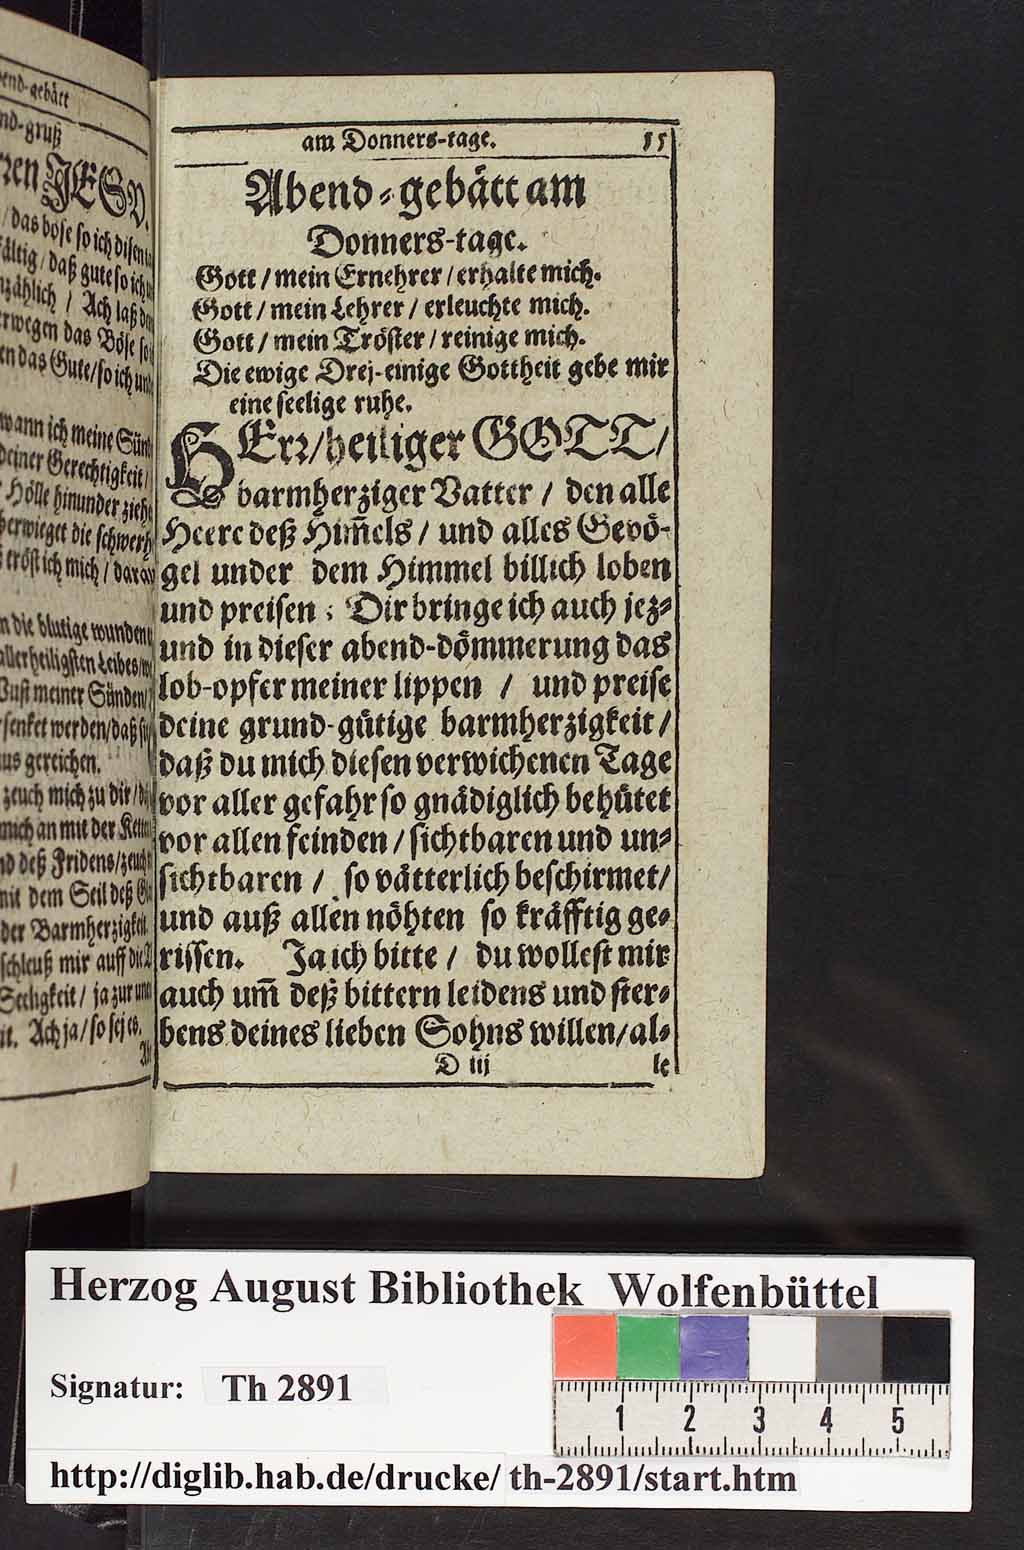 bend-gebätt
nd-gruß
ren JESV.
/ das böse so ich disen
fältig / daß gute so ich
nzählich / Ach laß
rwegen das Böse so
en das Gute / so ich
wann ich meine
deiner Gerechtigkeit /
Hölle hinunder
berwieget die
tröst ich mich /
n die blutige wunden
allerheiligsten Leibes /
Wust meiner Sünden /
rsenket werden / daß
us gereichen.
zeuch mich zu dir /
mich an mit der
nd deß Fridens /
mit dem Seil deß
der Barmherzigkeit
schleuß mir auff die
Seeligkeit / ja zur
it. Ach ja / so sej es.
am Donners-tage. 55
Abend-gebätt am
Donners-tage.
Gott / mein Ernehrer / erhalte mich.
Gott / mein Lehrer / erleuchte mich.
Gott / mein Tröster / reinige mich.
Die ewige Drej-einige Gottheit gebe mir
eine seelige ruhe.
HErr / heiliger GOTT /
barmherziger Vatter / den alle
Heere deß Him̃els / und alles Gevö-
gel under dem Himmel billich loben
und preisen: Dir bringe ich auch jez-
und in dieser abend-dömmerung das
lob-opfer meiner lippen / und preise
deine grund-gütige barmherzigkeit /
daß du mich diesen verwichenen Tage
vor aller gefahr so gnädiglich behütet
vor allen feinden / sichtbaren und un-
sichtbaren / so vätterlich beschirmet /
und auß allen nöhten so kräfftig ge-
rissen. Ja ich bitte / du wollest mir
auch um̃ deß bittern leidens und ster-
bens deines lieben Sohns willen / al-
D iij le
Herzog August Bibliothek Wolfenbüttel
Signatur: Th 2891
1 2 3 4 5
http://diglib.hab.de/drucke/ th-2891/start.htm